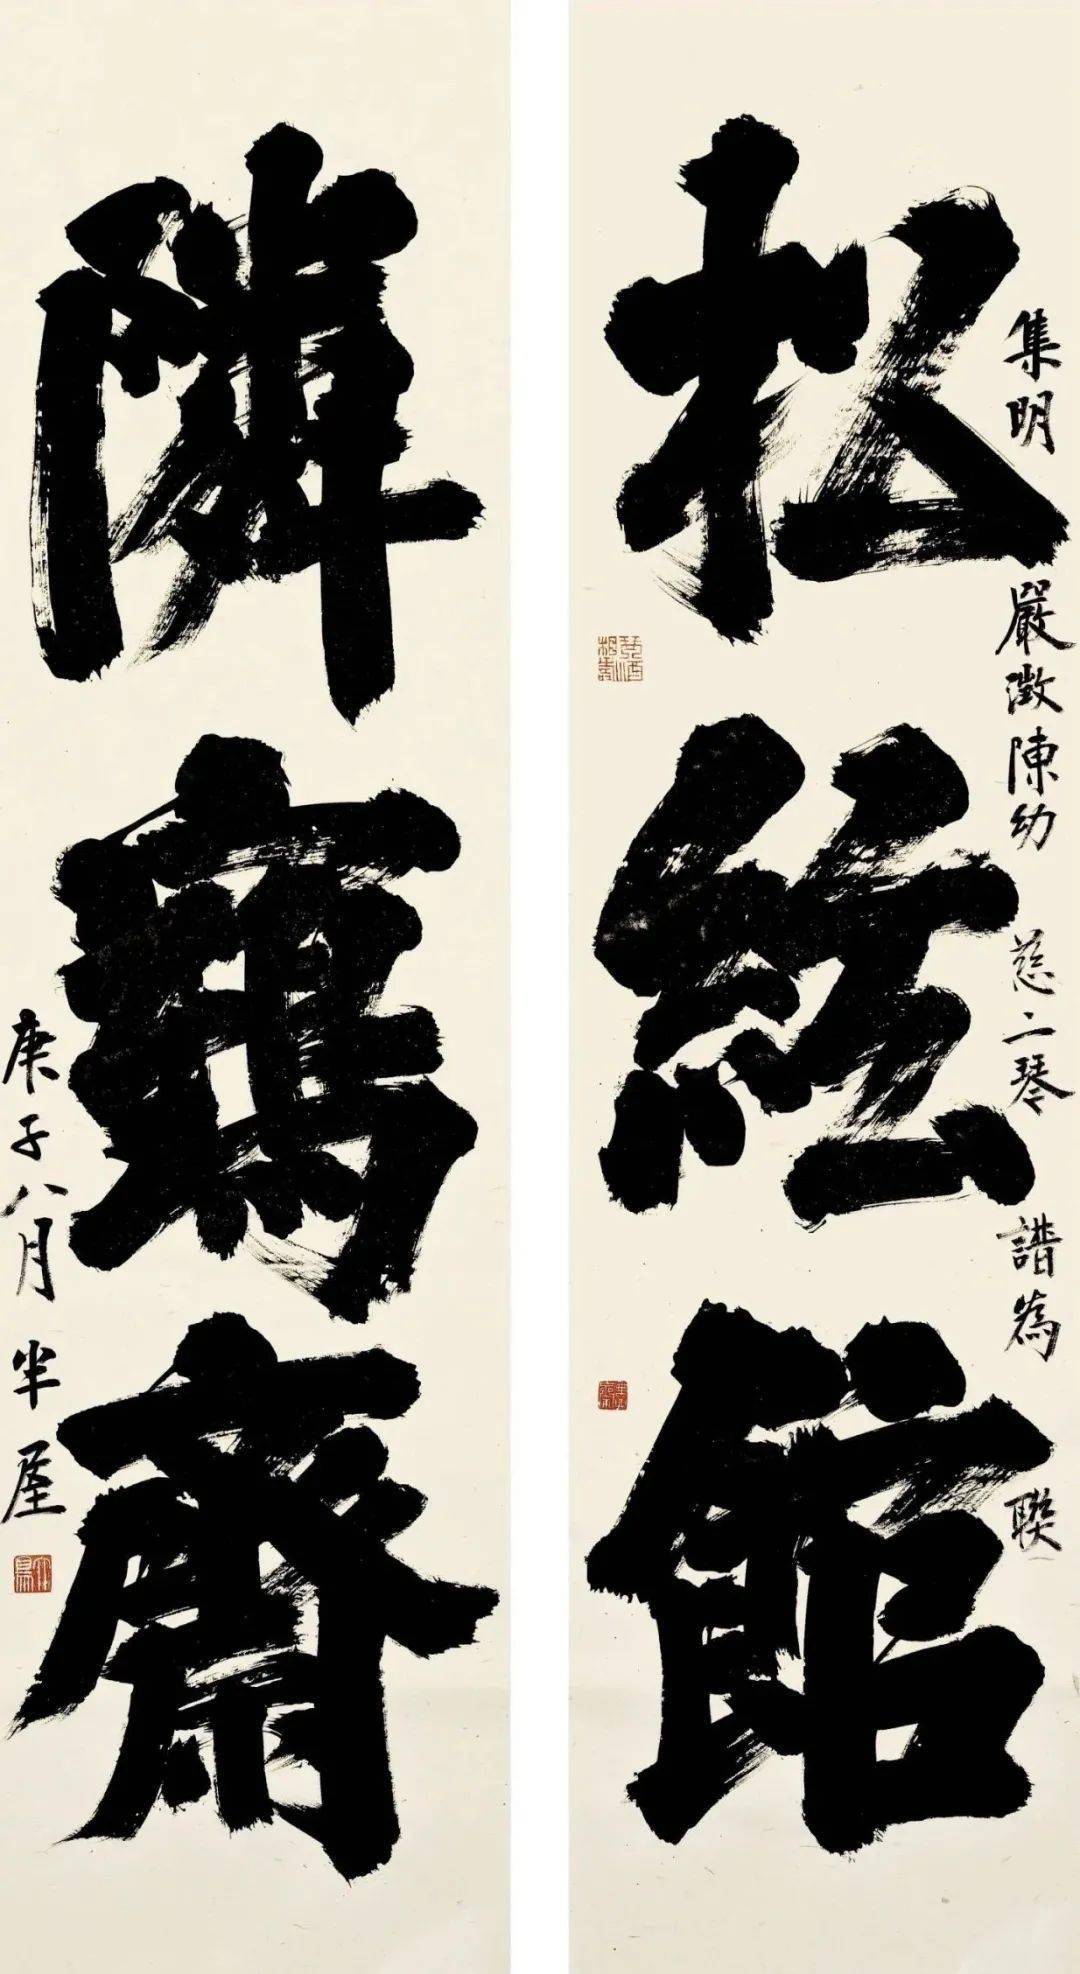 集明嚴澂陳幼慈二琴譜為聯
松絃館
隣鶴齋
庚子八月半屋